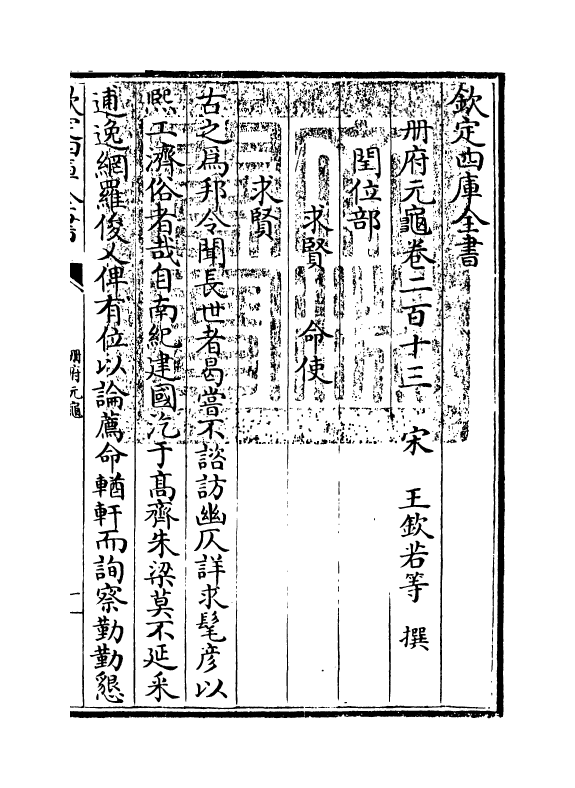 欽定四庫全書
册府元龜卷二百十三　宋　王欽若等　撰
閏位部
求賢　命使
求賢
古之爲邦令聞長世者曷嘗不諮訪幽仄詳求髦彦以
熙工濟俗者哉自南紀建國汔于髙齊朱梁莫不延采
逋逸網羅俊乂俾有位以論薦命輶軒而詢察勤勤懇
欽定四庫全書
册府元龜
一